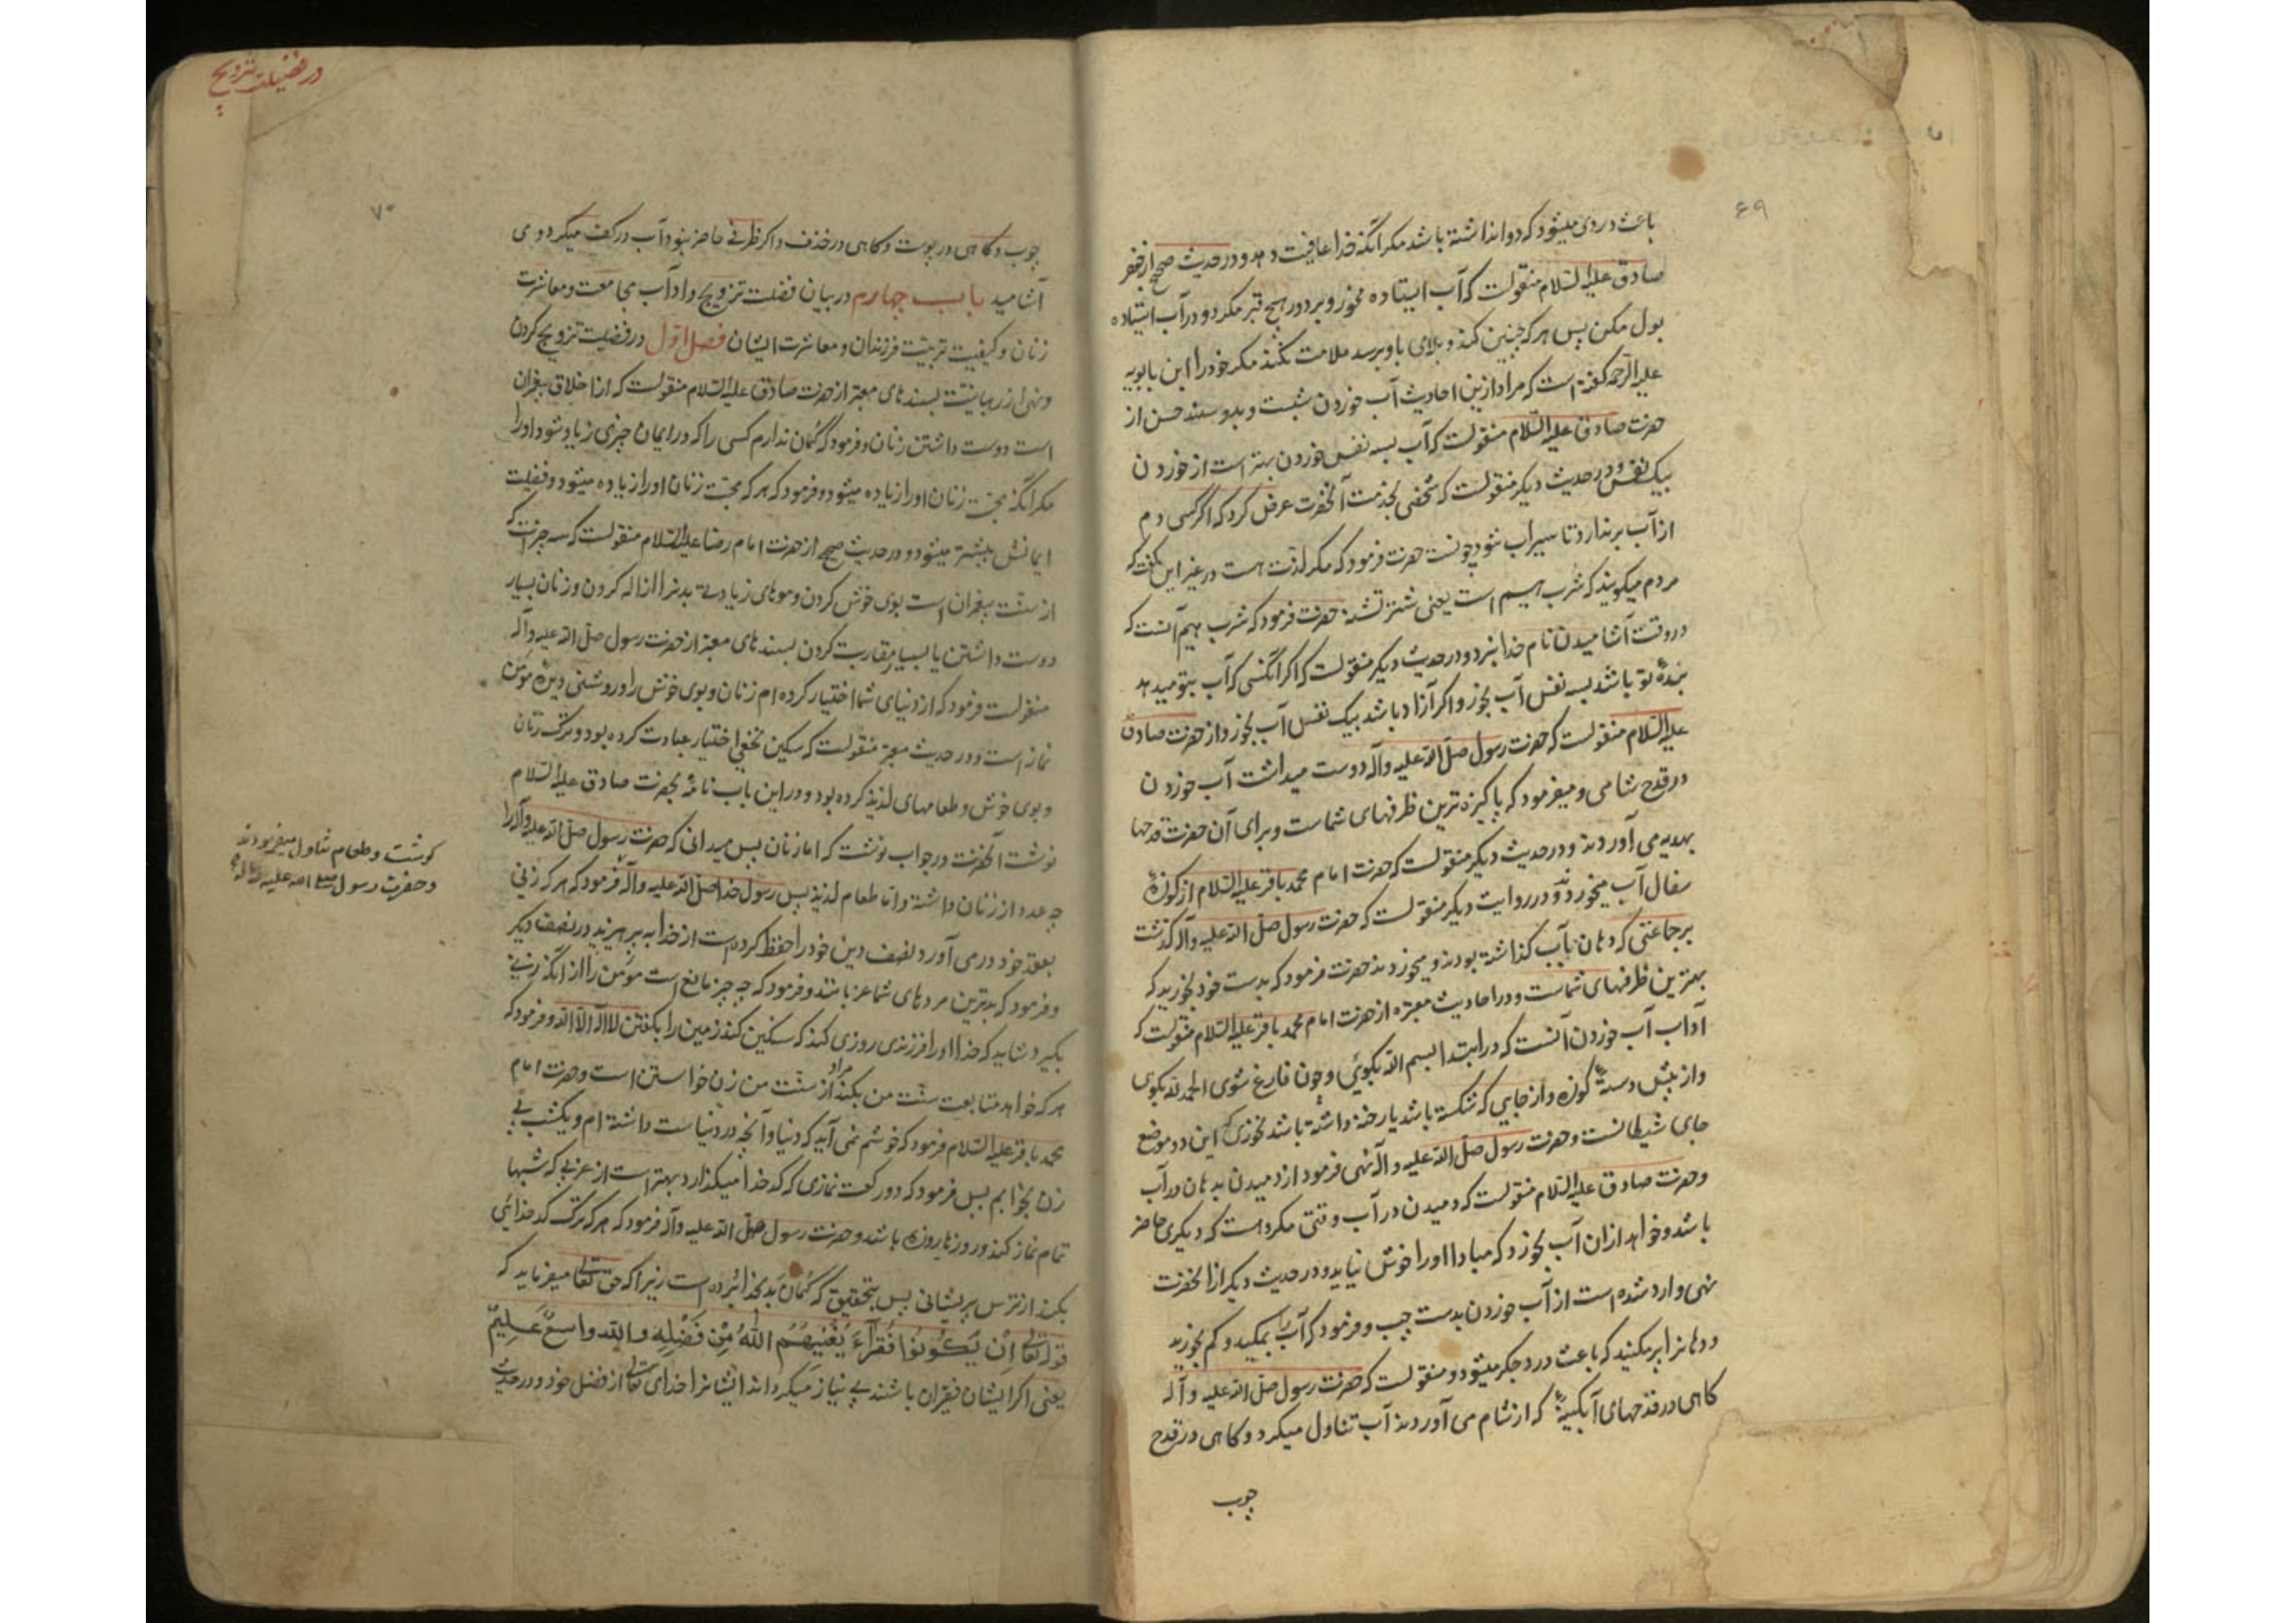 ۶۹
باعث دردی میشود که دوا نداشته باشد مکر آنکه خدا عافیت دهد و در حدیث صحیح از حضرت
صادق علیه السّلام منقولست که آب ایستاده مخور و بر دور هیچ قبر مکرد و در آب ایستاده
بول مکن پس هر که چنین کند و بلای باو برسد ملامت نکند مکر خود را ابن بابویه
علیه الرّحمه کفته است که مراد ازین احادیث آب خوردن شبست و بدو سند حسن از
حضرت صادق علیه السّلام منقولست که آب بسه نفس خوردن بهتر است از خوردن
بیک نفس و در حدیث دیکر منقولست که شخصی بخدمت آنحضرت عرض کرد که اکر کسی دم
از آب برندارد تا سیراب شود چونست حضرت فرمود که مکر لذّت هست در غیر این کفت که
مردم میکویند که شرب هیم است یعنی شتر تشنه حضرت فرمود که شرب هیم آنست که
در وقت آشامیدن نام خدا نبرد و در حدیث دیکر منقولست که اکر آنکسی که آب بتو میدهد
بندهٔ تو باشد بسه نفس آب بخور و اکر آزاد باشد بیک نفس آب بخور و از حضرت صادق
علیه السّلام منقولست که حضرت رسول صلّی الله علیه وآله دوست میداشت آب خوردن
در قدح شامی و میفرمود که پاکیزه ترین ظرفهای شماست و برای آن حضرت قدحها
بهدیه می آوردند و در حدیث دیکر منقولست که حضرت امام محمد باقر علیه السّلام از کوزهٔ
سفال آب میخوردند و در روایت دیکر منقولست که حضرت رسول صلّی الله علیه وآله کذشت
بر جماعتی که دهان بآب کذاشته بودند و میخوردند حضرت فرمود که بدست خود بخورید که
بهترین ظرفهای شماست و در احادیث معتبره از حضرت امام محمد باقر علیه السّلام منقولست که
آداب آب خوردن آنست که در ابتدا بسم الله بکوئی و چون فارغ شوی الحمد لله بکوی
و از پیش دستهٔ کوزه و از جایی که شکسته باشد یا رخنه داشته باشد نخوری که این دو موضع
جای شیطانست و حضرت رسول صلّی الله علیه وآله نهی فرمود از دمیدن بدهان در آب
و حضرت صادق علیه السّلام منقولست که دمیدن در آب وقتی مکروهست که دیکری حاضر
باشد و خواهد از ان آب بخورد که مبادا او را خوش نیاید و در حدیث دیکر از انحضرت
نهی وارد شده است از آب خوردن بدست چپ و فرمود که آب را بمکید و کم بخورید
و دهانرا پر مکنید که باعث درد جکر میشود و منقولست که حضرت رسول صلّی الله علیه وآله
کاهی در قدحهای آبکینهٔ که از شام می آوردند آب تناول میکرد و کاهی در قدح
چوب
در فضیلت تزویج
۷۰
چوب و کاهی در پوست و کاهی در خذف و اکر ظرفی حاضر نبود آب در کف میکرد و می
آشامید باب چهارم در بیان فضلت تزویج و اداب مجامعت و معاشرت
زنان و کیفیت تربیت فرزندان و معاشرت ایشان فصل اوّل در فضیلت تزویج کردن
و نهی از رهبانیّت بسندهای معتبر از حضرت صادق علیه السّلام منقولست که از اخلاق پیغمبران
است دوست داشتن زنان و فرمود که کمان ندارم کسی را که در ایمان چیزی زیاد شود او را
مکر آنکه محبّت زنان او را زیاده میشود و فرمود که هر که محبّت زنان او را زیاده میشود و فضیلت
ایمانش بیشتر میشود و در حدیث صحیح از حضرت امام رضا علیه السّلام منقولست که سه چیز است که
از سنّت پیغمبران است بوی خوش کردن و موهای زیادتی بدنرا ازاله کردن و زنان بسیار
دوست داشتن یا بسیار مقاربت کردن بسندهای معتبر از حضرت رسول صلّی الله علیه وآله
منقولست فرمود که از دنیای شما اختیار کرده ام زنان و بوی خوش را و روشنی دیدهٔ مؤمن
نماز است و در حدیث معتبر منقولست که سکین نخعی اختیار عبادت کرده بود و ترک زنان
و بوی خوش و طعامهای لذیذ کرده بود و در این باب نامهٔ بحضرت صادق علیه السّلام
نوشت آنحضرت در جواب نوشت که اما زنان پس میدانی که حضرت رسول صلّی الله علیه وآله را
چه عدد از زنان داشته و اما طعام لذیذ پس رسول خدا صلّی الله علیه وآله فرمود که هر که زنی
بعقد خود درمی آورد نصف دین خود را حفظ کرده است از خدا بپرهیزید در نصف دیکر
و فرمود که بدترین مردهای شما عزبانند و فرمود که چه چیز مانع است مؤمن را از آنکه زنی
بکیرد شاید که خدا او را فرزندی روزی کند که سنکین کند زمین را بکفتن لا اله الّا الله و فرمود که
هر که خواهد متابعت سنّت من بکند مراد از سنّت من زن خواستن است و حضرت امام
محمد باقر علیه السّلام فرمود که خوشم نمی آید که دنیا و آنچه در دنیاست داشته ام و یکشب بی
زن بخوابم پس فرمود که دو رکعت نمازی که کدخدا میکذارد بهتر است از عزبی که شبها
تمام نماز کند و روزها روزه باشد و حضرت رسول صلّی الله علیه وآله فرمود که هر که ترک کدخدائی
بکند از ترس پریشانی پس بتحقیق که کمان بد بخدا برده است زیرا که حق تعالی میفرماید که
قوله تعالی اِن یَکُونُوا فُقَرآءَ یُغْنِیهُمُ اللهُ مِنْ فَضْلِهِ والله واسعٌ عَلِیمٌ
یعنی اکر ایشان فقیران باشند بی نیاز میکرداند ایشانرا خدای تعالی از فضل خود و در حدیث
کوشت و طعام تناول میفرمودند
و حضرت رسول صلی الله علیه وآله